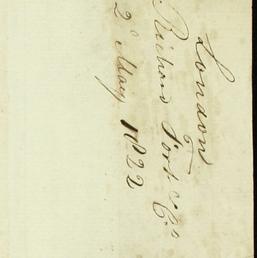 London
Richard Fort & Co
2 May 1822